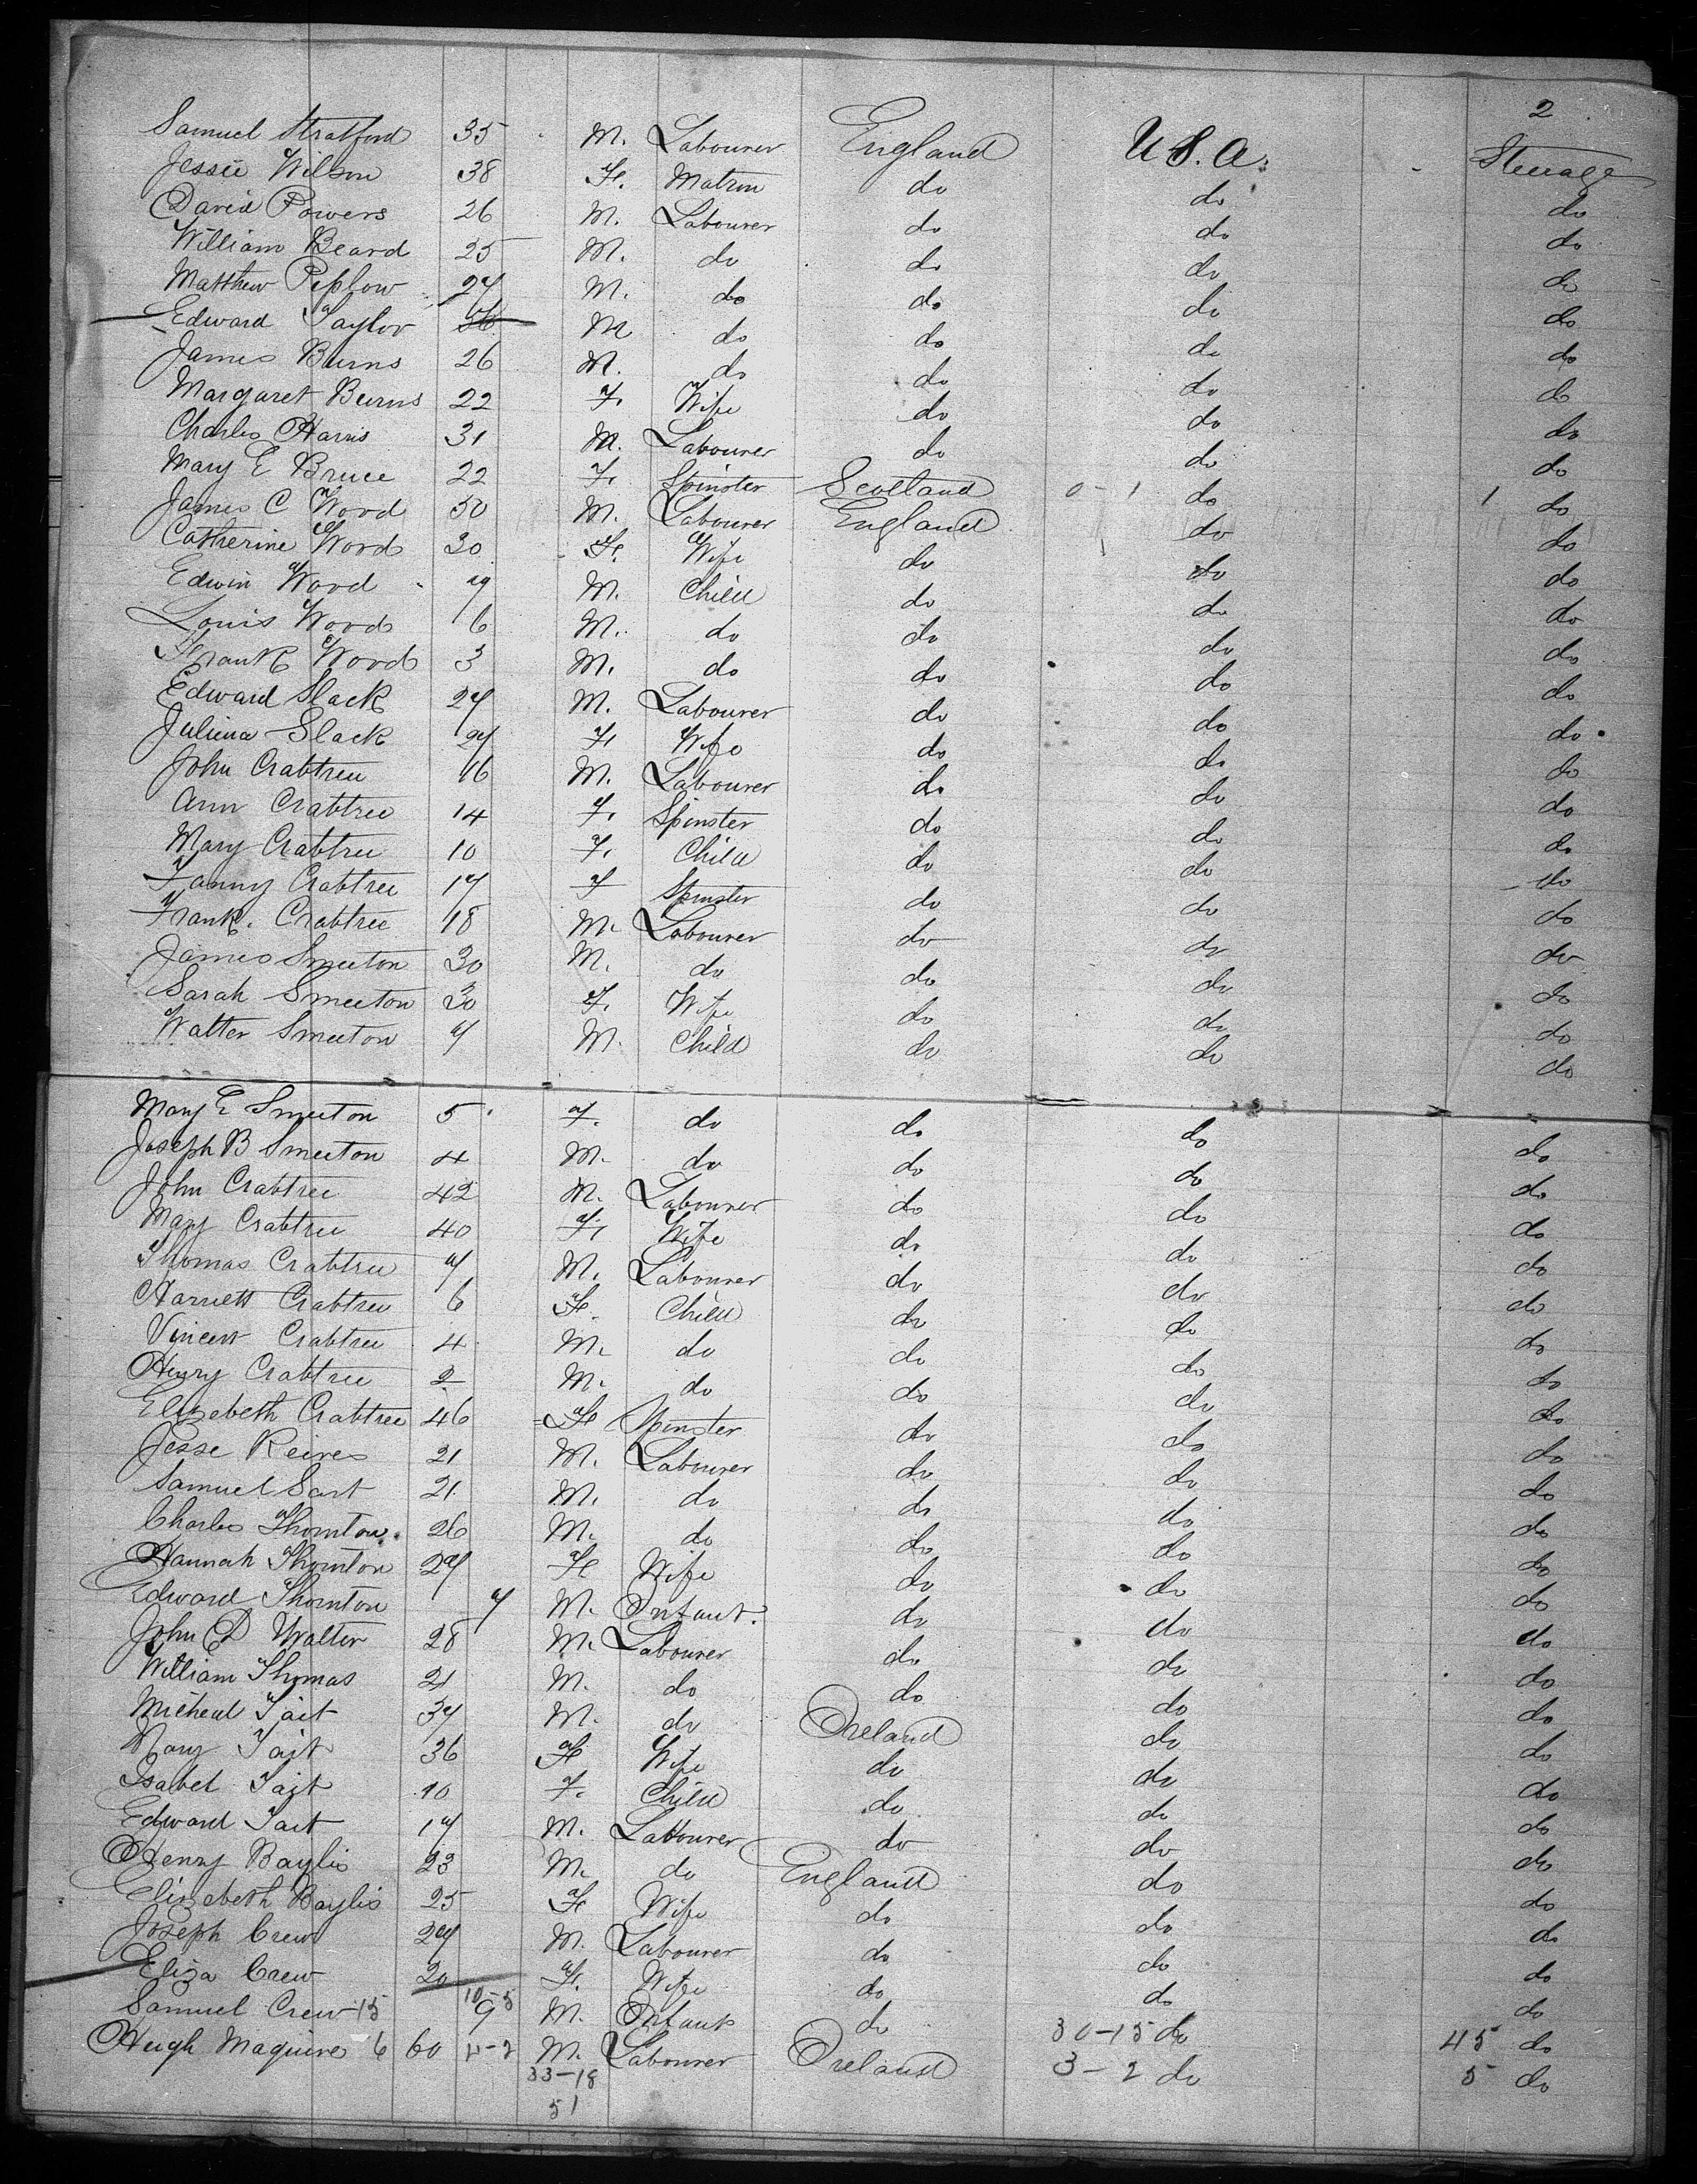 2
Samuel Stratford 35 M. Labourer England U.S.A. Steerage
Jessie Wilson 38 F. Matron do do do
David Powers 26 M. Labourer do do do
William Beard 25 M. do do do do
Matthew Peplow 27 M. do do do do
Edward Taylor M do do do do
James Burns 26 M. do do do do
Margaret Burns 22 F. Wife do do do
Charles Harris 31 M. Labourer do do do
Mary E Bruce 22 F. Spinster Scotland 0-1 do 1 do
James C Wood 30 M. Labourer England do do
Catherine Wood 30 F. Wife do do do
Edwin Wood 9 M. Child do do do
Louis Wood 6 M. do do do do
Frank Wood 3 M. do do do do
Edward Slack 27 M. Labourer do do do
Juliena Slack 27 F. Wife do do do
John Crabtree 16 M. Labourer do do do
Ann Crabtree 14 F. Spinster do do do
Mary Crabtree 10 F. Child do do do
Fanny Crabtree 17 F Spinster do do do
Frank. Crabtree 18 M. Labourer do do do
James Smeeton 30 M. do do do do
Sarah Smeeton 30 F. Wife do do do
Walter Smeeton 7 M. Child do do do
Mary E Smeeton 5 F. do do do do
Joseph B Smeeton 4 M. do do do do
John Crabtree 42 M. Labourer do do do
Mary Crabtree 40 F. Wife do do do
Thomas Crabtree 7 M. Labourer do do do
Harriett Crabtree 6 F. Child do do do
Vincent Crabtree 4 M. do do do do
Henry Crabtree 2 M. do do do do
Elizebeth Crabtree 46 F Spinster do do do
Jesse Reives 21 M. Labourer do do do
Samuel Sart 21 M. do do do do
Charles Thornton 26 M. do do do do
Hannah Thornton 27 F Wife do do do
Edward Thornton 7 M. Infant. do do do
John D Walter 28 M. Labourer do do do
William Thomas 21 M. do do do do
Micheal Tait 37 M. do Ireland do do
Mary Tait 36 F Wife do do do
Isabel Tait 10 F. Child do do do
Edward Tait 17 M. Labourer do do do
Henry Baylis 23 M. do England do do
Elizabeth Baylis 25 F Wife do do do
Joseph Crew 27 M. Labourer do do do
Eliza Crew 20 F. Wife do do do
Samuel Crew 15 10-5 9 M. Infant do 30-15 do 45 do
Hugh Maguire 6 60 4-2 M. Labourer Ireland 3-2 do 5 do
33-18
51